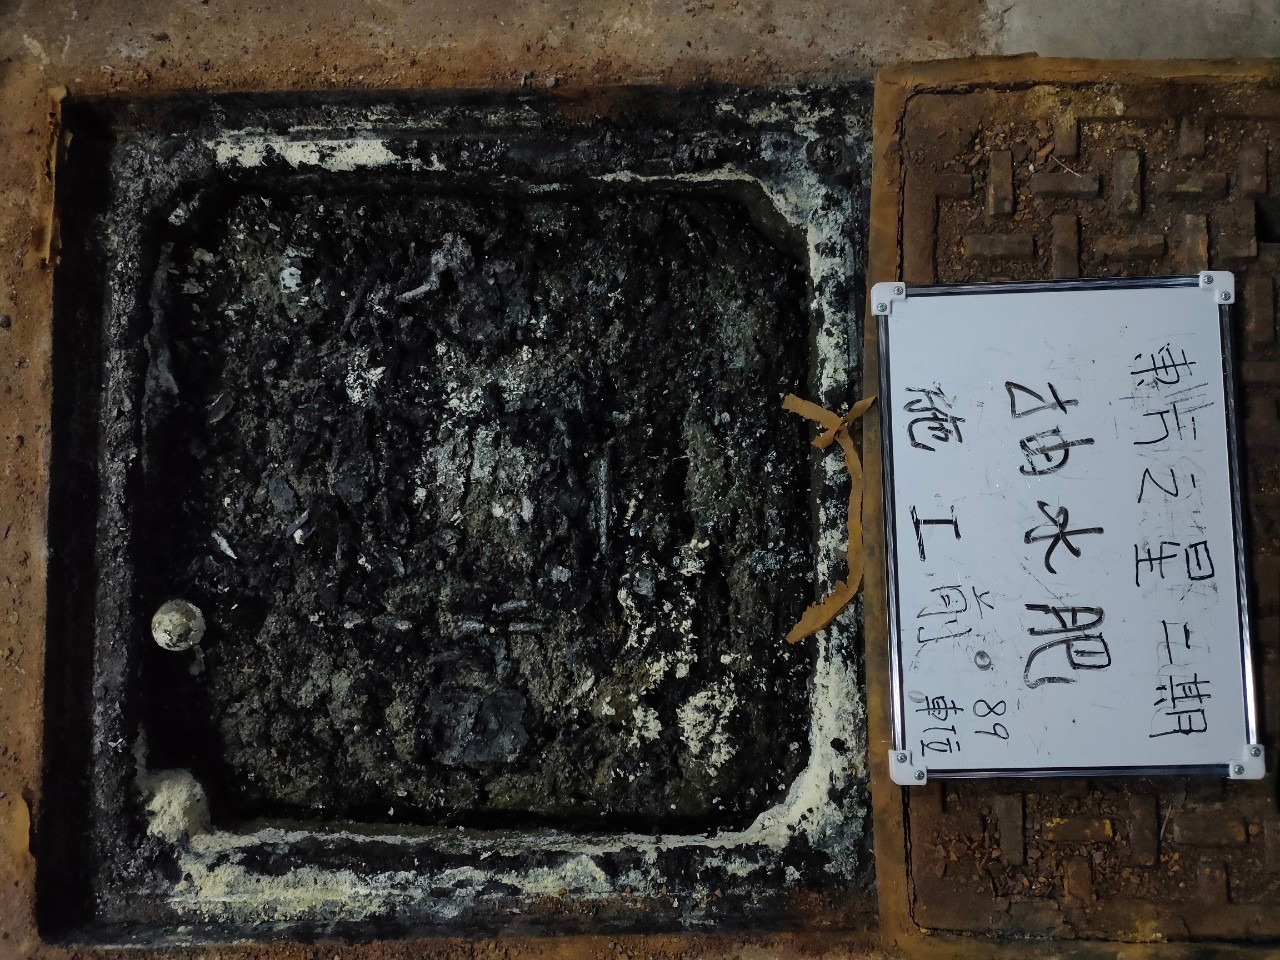 東方之星二期
抽水肥
施工前。89
車位